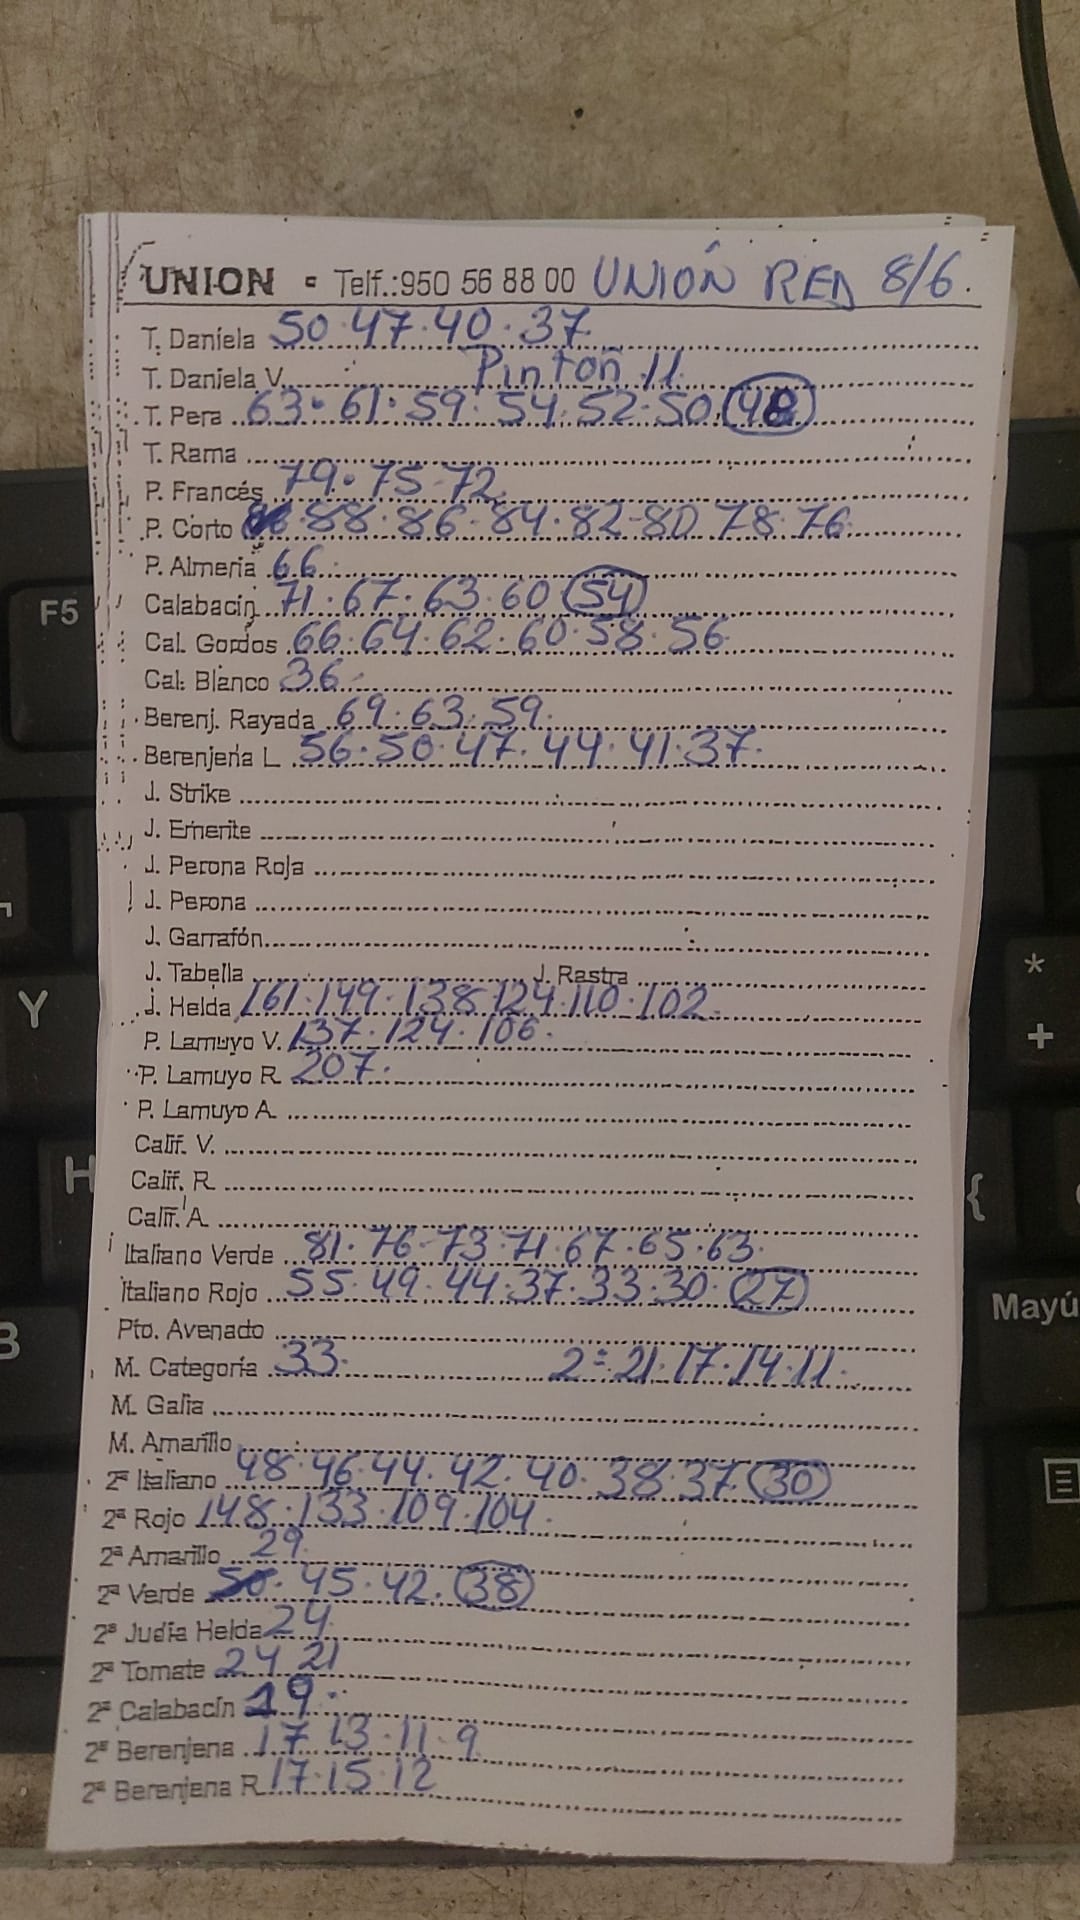 UNION - Telf.:950 56 88 00 UNIÓN RED 8/6.
T. Daniela 50.47.40.37
T. Daniela V. Pintón 11
T. Pera 63.61.59.54.52.50.48
T. Rama
P. Francés 79.75.72
P. Corto 88.86.84.82-80.78.76
P. Almeria 66
Calabacin 71.67.63.60 54
Cal. Gordos 66.64.62.60.58.56
Cal. Blanco 36
Berenj. Rayada 69.63.59
Berenjena L. 56.50.47.44.41.37.
J. Strike
J. Emerite
J. Perona Roja
J. Perona
J. Garrafón
J. Tabella J. Rastra
J. Helda 161.149.138.124.110.102
P. Lamuyo V. 137.124.106.
P. Lamuyo R. 207.
P. Lamuyo A.
Calif. V.
Calif. R.
Calif. A.
Italiano Verde 81.76-73.71.67.65.63
Italiano Rojo 55.49.44.37.33.30.27
Pto. Avenado
M. Categoría 33. 2ª 21.17.14.11.
M. Galia
M. Amarillo
2ª Italiano 48.46.44.42.40.38.37.30
2ª Rojo 148.133.109.104.
2ª Amarillo 29
2ª Verde 50.45.42.38
2ª Judía Helda 24
2ª Tomate 24 21
2ª Calabacín 19.
2ª Berenjena 17 13.11.9
2ª Berenjena R. 17.15.12
F5
Y
H
B
*
+
{
Mayú